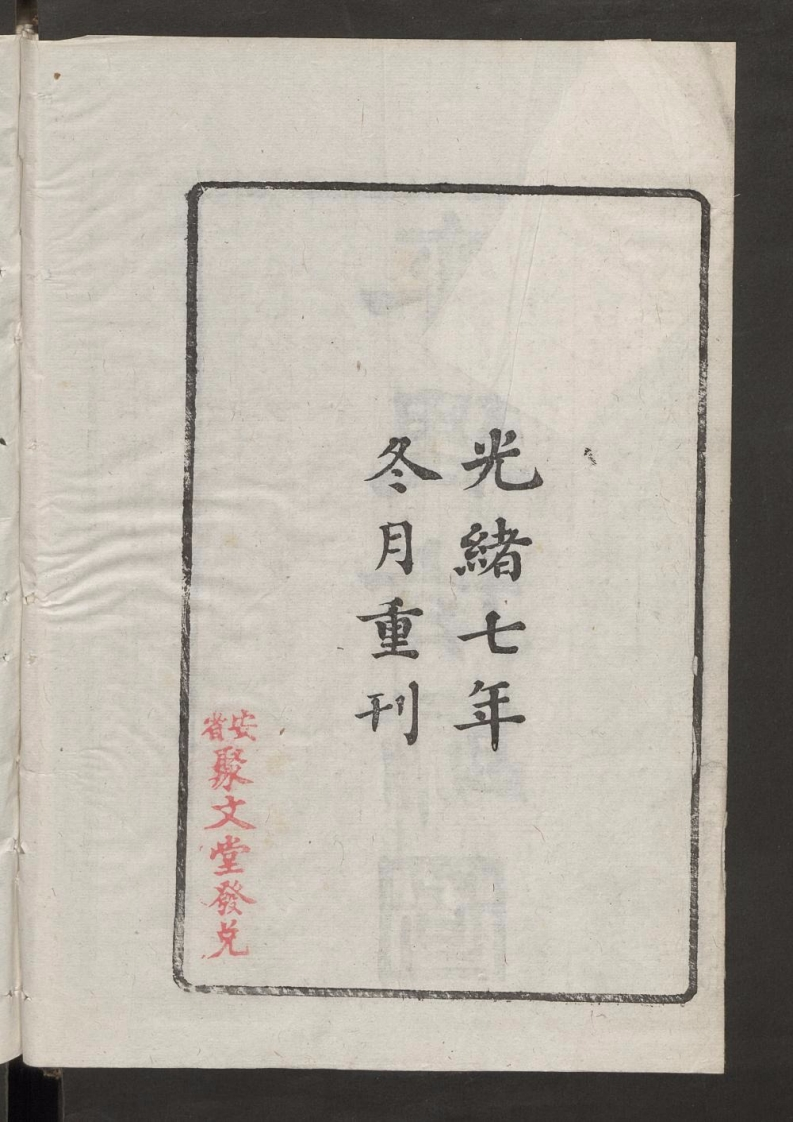 光緒七年
冬月重刊
安省聚文堂發兌